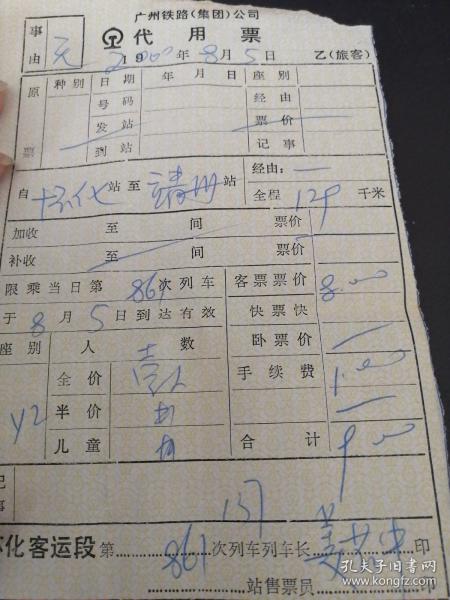 广州铁路(集团)公司
事由 无 代用票
2000年8月5日 乙(旅客)
原票 种别 日期 年月日 座别
号码 经由
发站 票价
到站 记事
自怀化站至靖州站 经由:
全程129千米
加收 至 间 票价
补收 至 间 票价
限乘当日第861次列车 客票票价 8.00
于8月5日到达有效 快票快
座别 人数 卧票价
全价 壹人 手续费 1.00
YZ 半价
儿童 合计 9.00
记事
137
怀化客运段第861次列车列车长 姜 印
站售票员 印
孔夫子旧书网